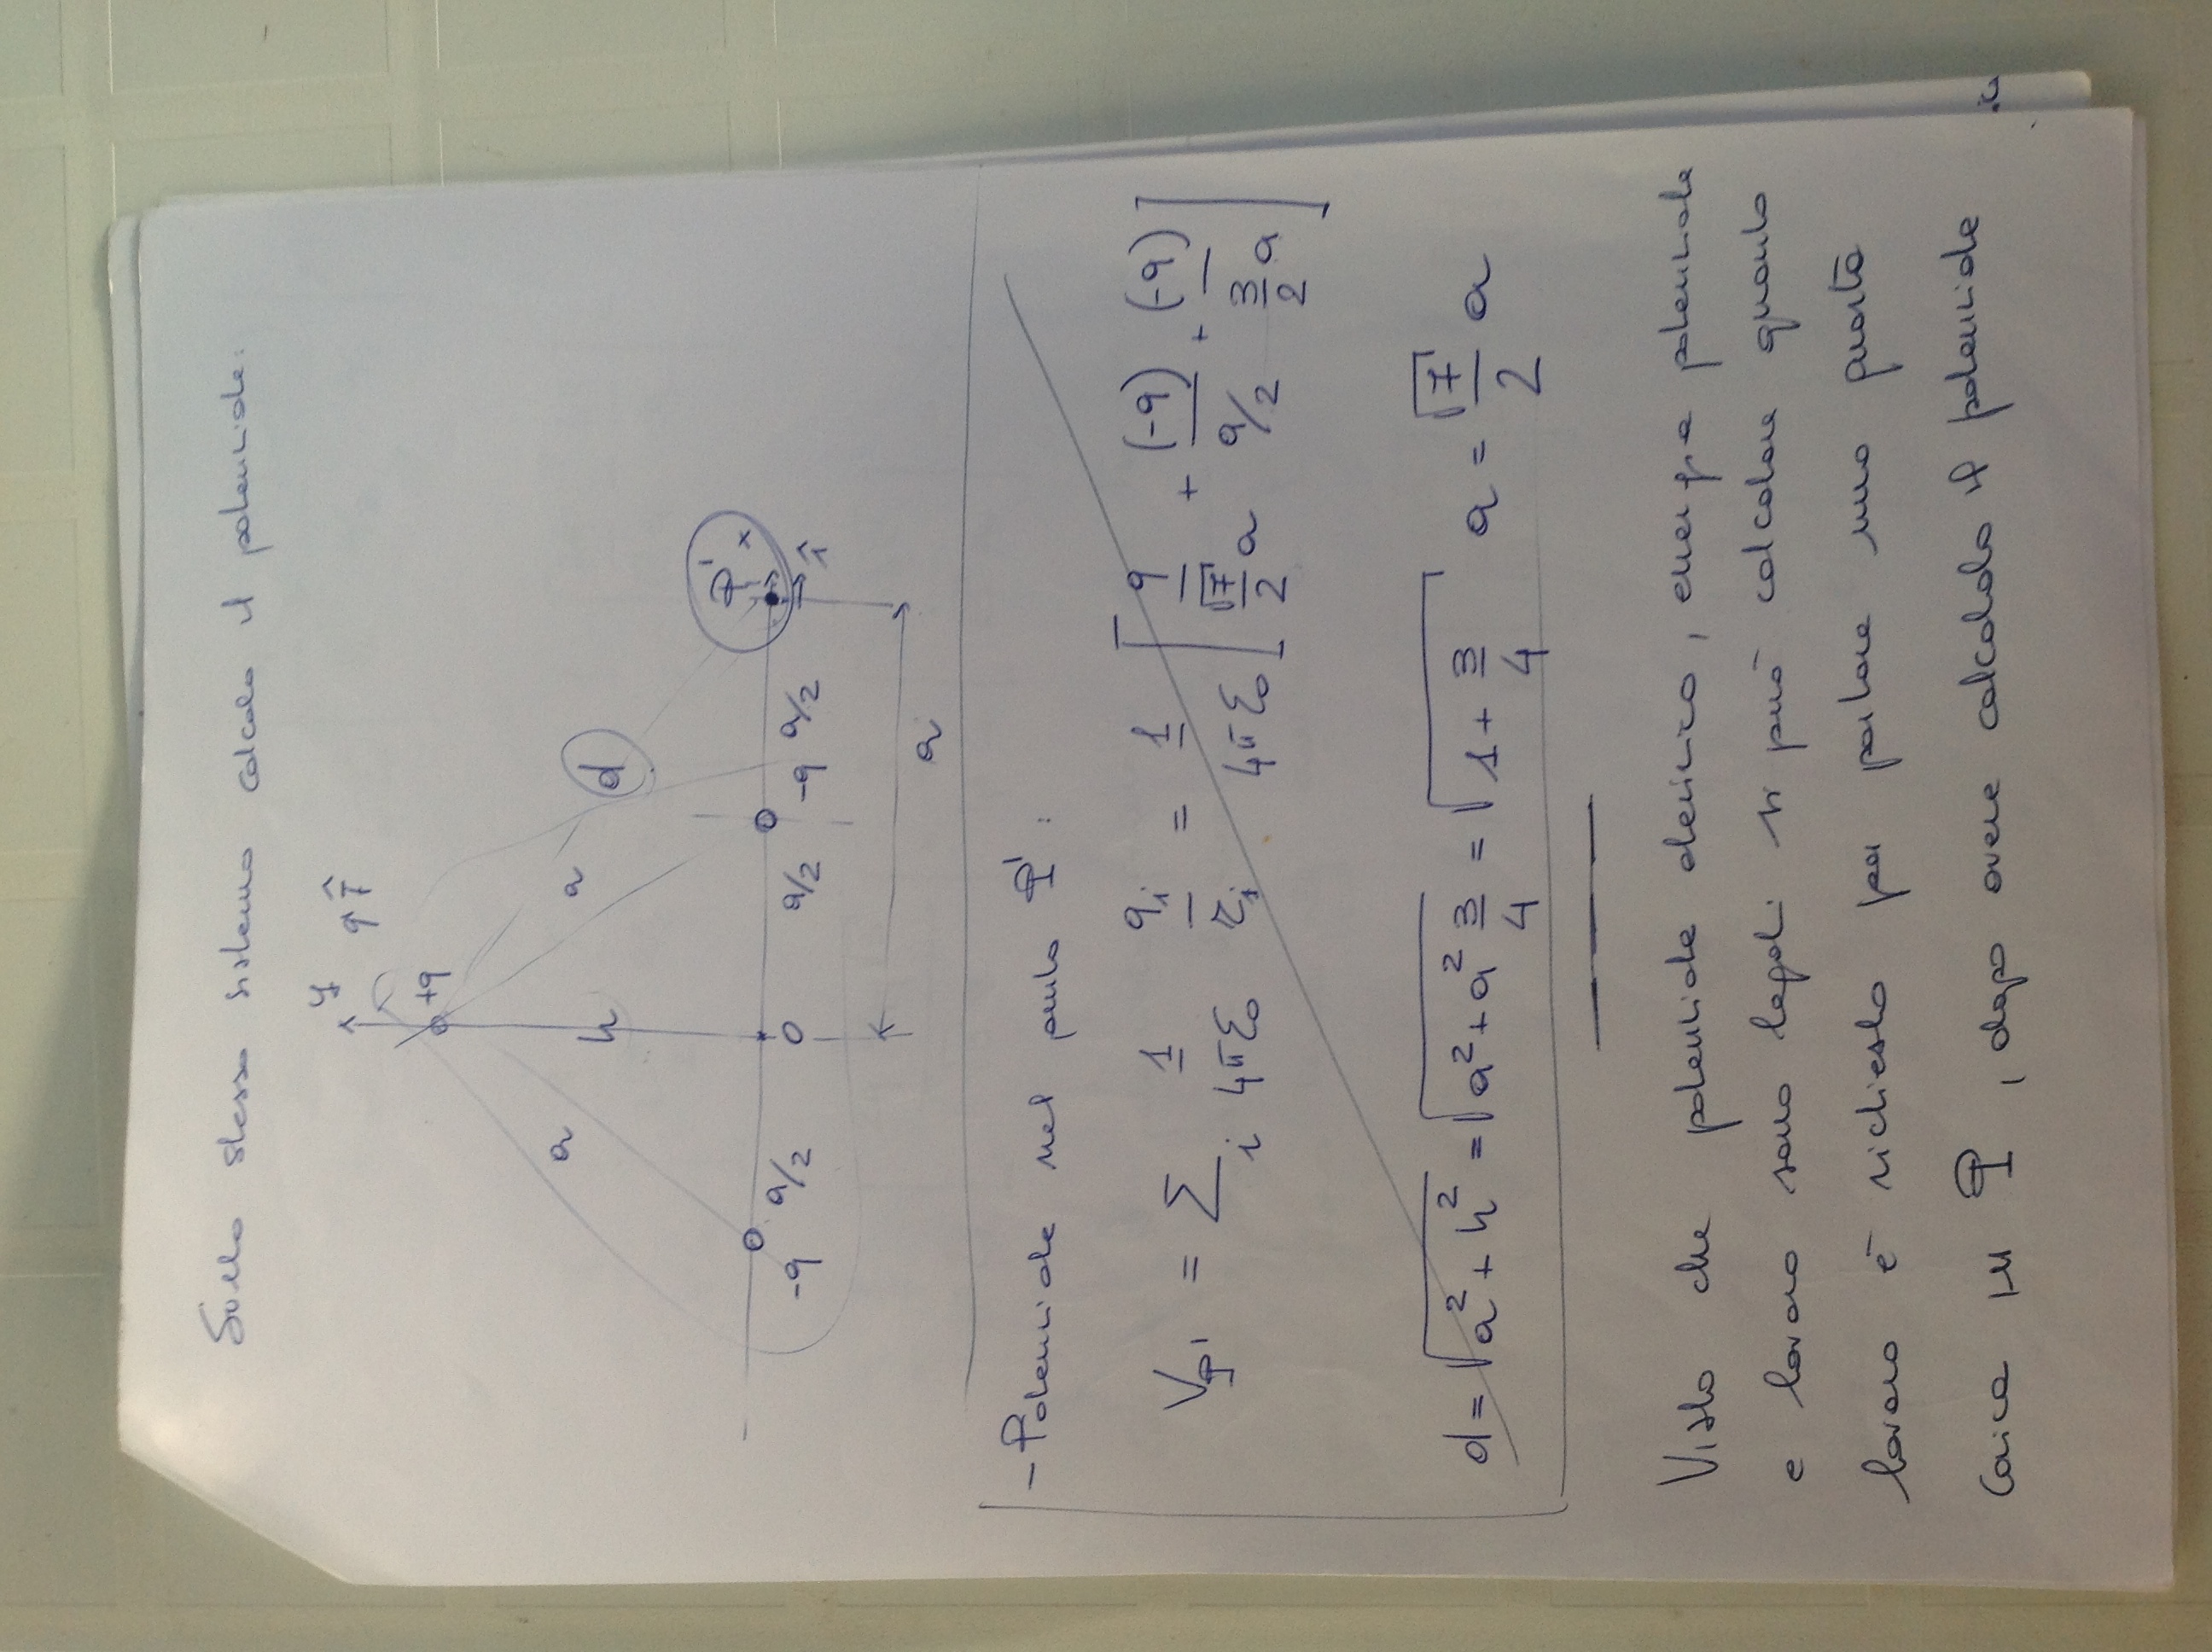 Sullo stesso sistema calcolo il potenziale:
y
ĵ
+q
a
h
a
d
P' x
-q a/2 0 a/2 -q a/2 î
a
- Potenziale nel punto P':
V_P' = Σ_i 1/4πε₀ q_i/r_i = 1/4πε₀ [ q/(√7/2 a) + (-q)/(a/2) + (-q)/(3/2 a) ]
d = √(a² + h²) = √(a² + a² 3/4) = √(1 + 3/4) a = √7/2 a
Visto che potenziale elettrico, energia potenziale
e lavoro sono legati si può calcolare quanto
lavoro è richiesto per portare una quarta
carica in P, dopo avere calcolato il potenziale